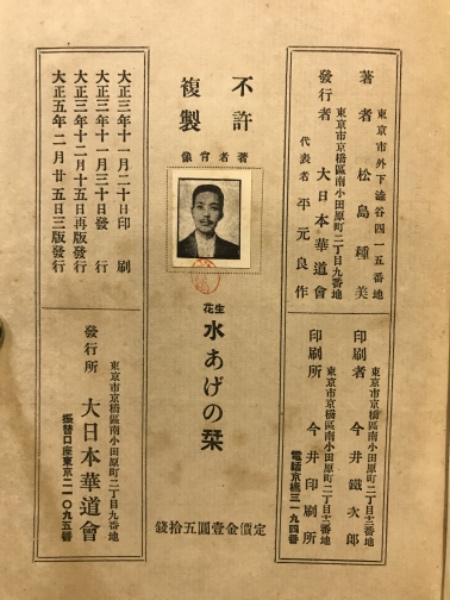 東京市外下澁谷四一五番地
著者 松島種美
東京市京橋區南小田原町二丁目九番地
發行者 大日本華道會
代表者 平元良作
東京市京橋區南小田原町二丁目十二番地
印刷者 今井鐵次郎
東京市京橋區南小田原町二丁目十二番地
印刷所 今井印刷所
電話京橋三一九四番
不許
複製
像肖者著
生花
水あげの栞
錢拾五圓壹金價定
大正三年十一月二十日印刷
大正三年十一月三十日發行
大正三年十二月十五日再版發行
大正五年二月廿五日三版發行
東京市京橋區南小田原町二丁目九番地
發行所 大日本華道會
振替口座東京二一〇九五番